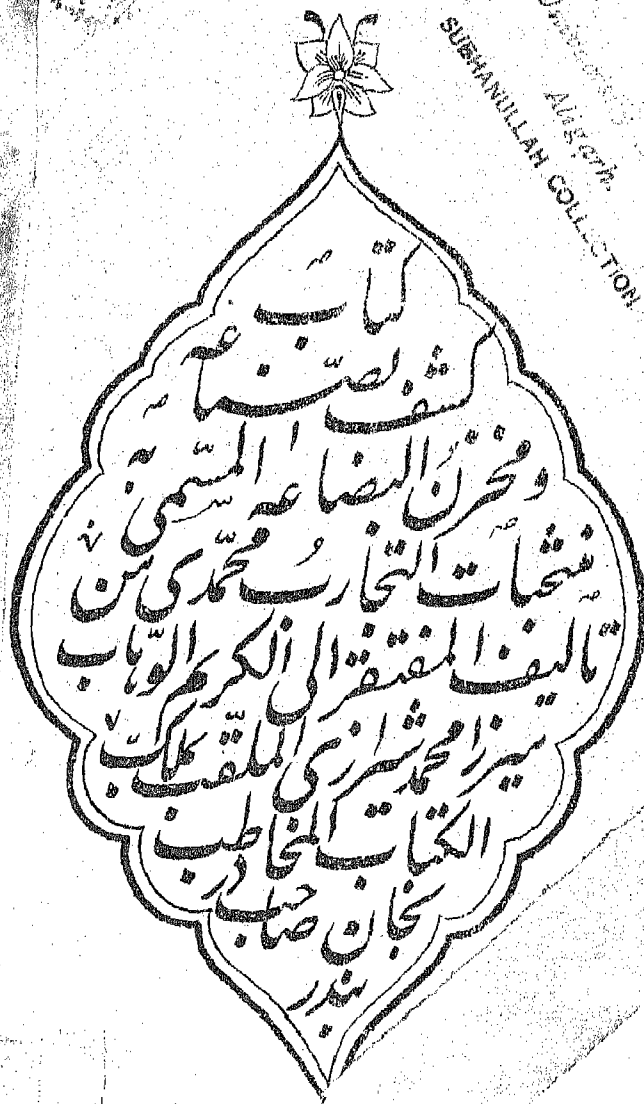 University
Aligarh.
SUBHANULLAH COLLECTION
کتاب
کشف الصّناعه
و مخزنُ البضاعه المسمّی به
منتخبات التجاربُ محمّدی من
تالیف المفتقر الی الکریم الوهّاب
میرزا محمد شیرازی الملقّب بملک
الکتاب المخاطب
بخان صاحب در
بندر